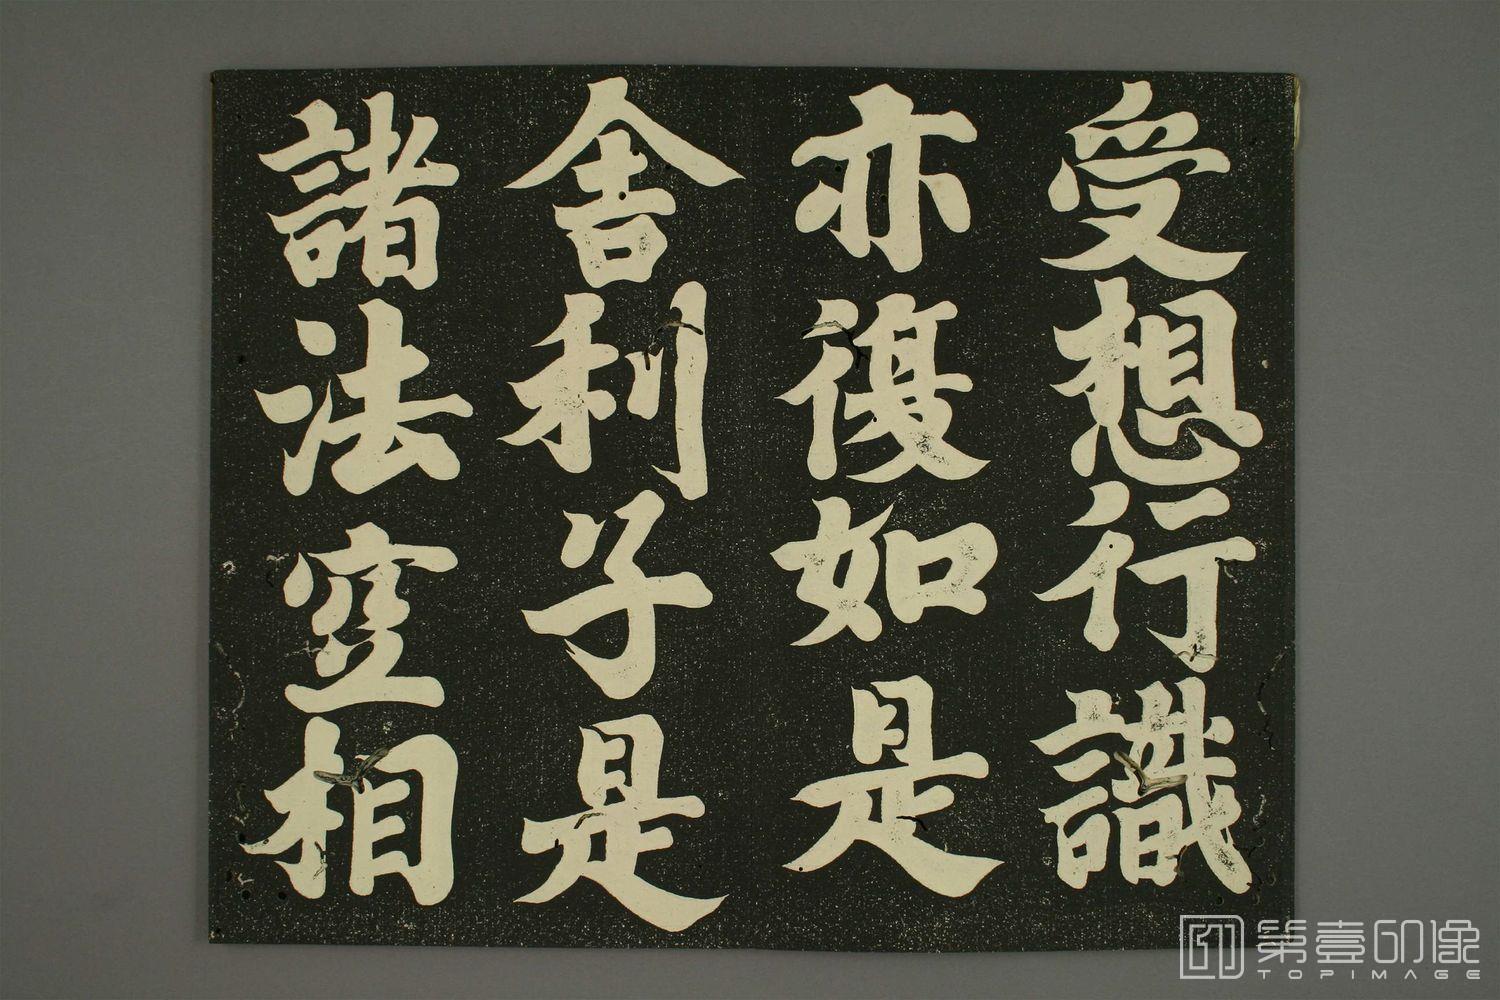 受想行識
亦復如是
舍利子是
諸法空相
第壹印像
TOPIMAGE